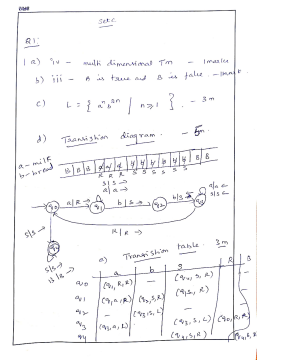 Set C
Q1:
1 a) iv - multi dimensional Tm - 1 mark
b) iii - A is true and B is false - 1 mark
c) L = { aⁿ b²ⁿ | n ≥ 1 } . - 3m
d) Transition diagram. - 5m
a - milk
b - bread
B B B
R R R S S S S S
S | S →
a | a →
q0 a | R → q1 b | S → q2 b | S q3 a | a ←
S | S ←
R | R →
S | S →
S | S →
e) Transition table. 3m
a b S R B
q0 (q1, R, R) - (q4, S, R) -
q1 (q1, a, R) (q2, S, R) (q1, S, R) - -
q2 - (q3, S, L) - -
q3 (q3, a, L) - (q3, S, L) (q0, R, R) -
q4 (q4, S, R)